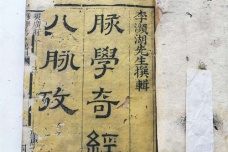 李瀕湖先生撰輯
脈學奇經
八脈攷